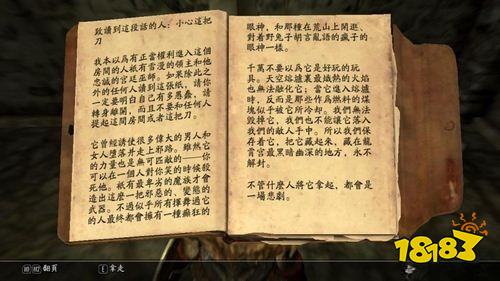 致讀到這段話的人：小心這把
刀
我本以爲有正當權利進入這個
房間的人祇有雪漫的領主和他
忠誠的宮廷巫師。如果除此之
外的任何人讀到這張紙，請你
一定要明白自己有多愚蠢，請
轉身離開，而且不要和任何人
提起這間房間或者這把刀。
它曾經誘使很多偉大的男人和
女人墮落并走上邪路。雖然它
的力量也是無可匹敵的——你
可以在一個人對你笑的時候殺
死他。祇有最卑劣的魔族才會
造出這麽一把邪惡的、變態的
武器。不過似乎所有揮舞過它
的人最終都會擁有一種癲狂的
眼神，和那種在荒山上閑逛、
對着野兔子胡言亂語的瘋子的
眼神一樣。
千萬不要以爲它是好玩的玩
具。天空熔爐裏最熾熱的火焰
也無法融化它；當它進入熔爐
時，反而是那些作爲燃料的煤
塊似乎被它所冷却。我們無法
毁掉它，我們也不能讓它落入
我們的敵人手中。所以我們保
存着它，把它藏起來，藏在龍
霄宮最黑暗幽深的地方，永不
解封。
不管什麽人將它拿起，都會是
一場悲劇。
翻頁
E 拿走
18183